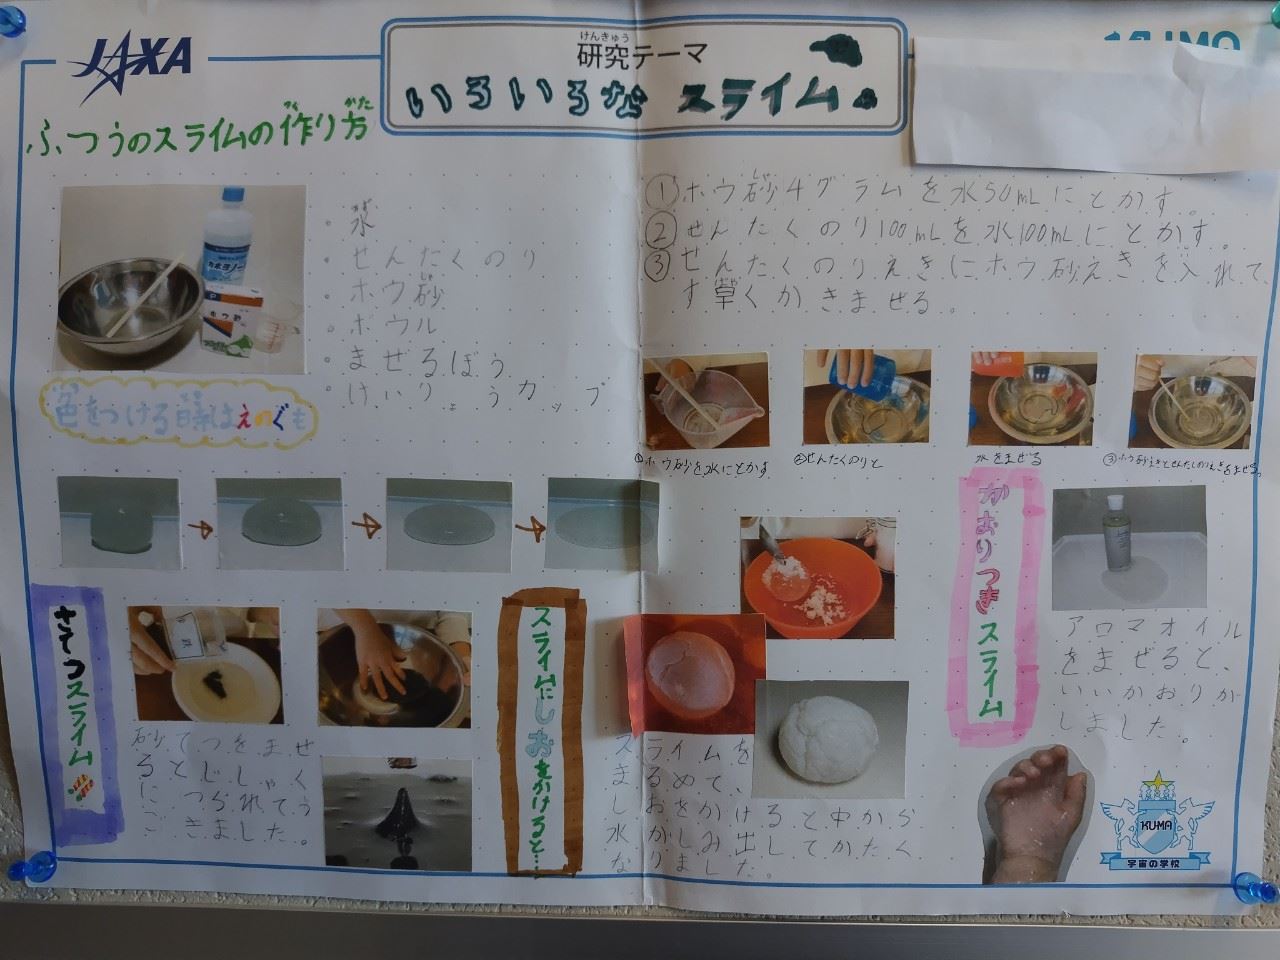 JAXA
けんきゅう
研究テーマ
いろいろな スライム。
つく かた
ふつうのスライムの作り方
・水
・せんたくのり
・ホウ砂
・ボウル
・まぜるぼう
・けいりょうカップ
色をつける
えのぐも
①ホウ砂4グラムを水50mLにとかす。
②せんたくのり100mLを水100mLにとかす。
③せんたくのりえきにホウ砂えきを入れて、
くかきまぜる。
①ホウ砂を水にとかす
②せんたくのりと
水をまぜる
③ホウ砂えきとせんたくのりえきをまぜる。
さてつスライム
砂てつをまぜ
るとじしゃく
につられてう
ごきました。
スライムにしおをかけると…
スライムを
まるめて、
しおをかけると中から
水がしみ出してかたく
なりました。
かおりつきスライム
アロマオイル
をまぜると、
いいかおりが
しました。
KUMA
宇宙の学校